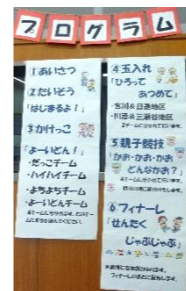 プログラム
①あいさつ
②たいそう
「はじまるよ!」
③かけっこ
「よーいどん!」
・だっこチーム
・ハイハイチーム
・よちよちチーム
・よーいどんチーム
④玉入れ
「ひろって
あつめて」
⑤親子競技
「かお・かお・かお
どんなかお?」
⑥フィナーレ
「せんたく
じゃぶじゃぶ」